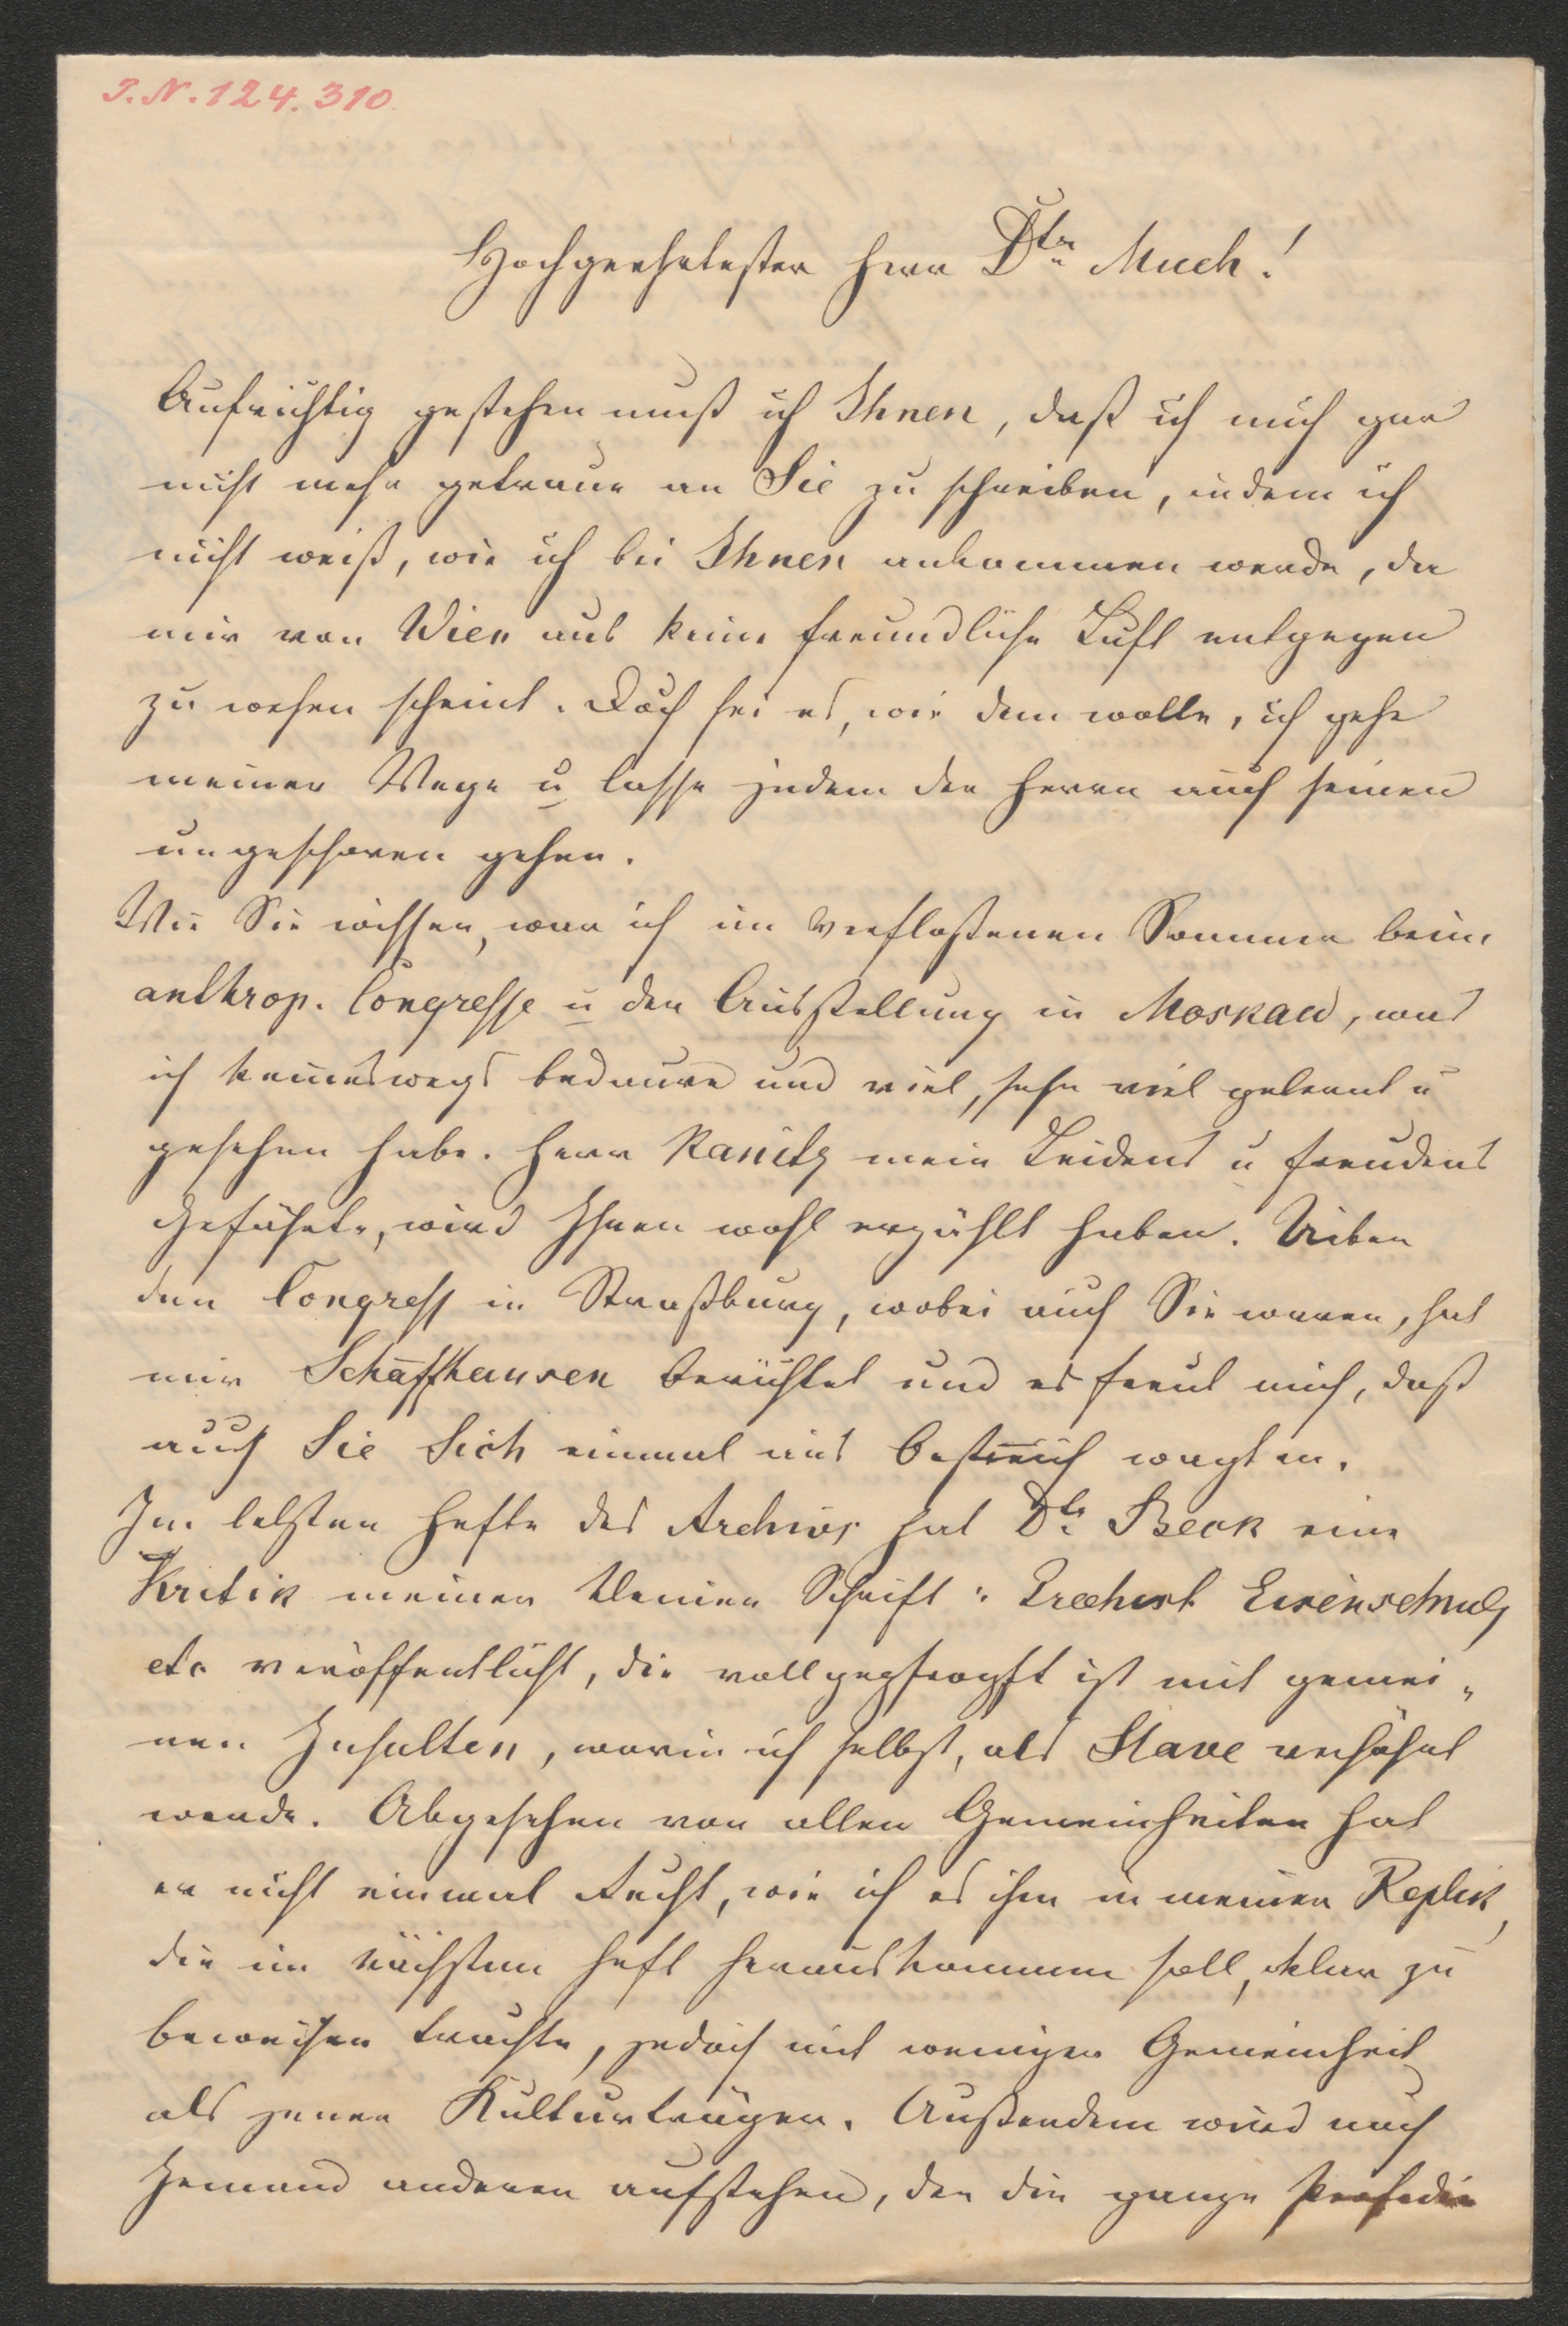 I.N. 124.310
Hochgeehrtester Herr Dtr. Much!
Aufrichtig gestehen muß ich Ihnen, daß ich mich gar
nicht mehr getraue an Sie zu schreiben, indem ich
nicht weiß, wie ich bei Ihnen ankommen werde, da
mir von Wien aus keine freundliche Luft entgegen
zu wehen scheint. Doch sei es, wie dem wolle, ich gehe
meiner Wege u lasse jedem der Herrn auch seinen
ungeschoren gehen.
Wie Sie wissen, war ich im verfloßenen Sommer beim
anthrop. Congresse u der Ausstellung in Moskau, was
ich keineswegs bedaure und viel, sehr viel gelernt u
gesehen habe. Herr Kanitz mein Leidens u Freudens
Gefährte, wird Ihnen wohl erzählt haben. Uiber
den Congress in Straßburg, wobei auch Sie waren, hat
mir Schaffhausen berichtet und es freut mich, daß
auch Sie Sich einmal aus Östreich wagten.
Im letzten Hefte des Archivs hat Dtr. Beck eine
Kritik meiner kleinen Schrift: Praehist Eisenschmelz
etc veröffentlicht, die vollgepfropft ist mit gemei„
nen Insulten, worin ich selbst, als Slave verhöhnt
werde. Abgesehen von allen Gemeinheiten hat
er nicht einmal Recht, wie ich es ihm in meiner Replik,
die im nächsten Heft herauskommen soll, klar zu
beweisen trachte, jedoch mit weniger Gemeinheit
als jener Kulturträger. Außerdem wird noch
Jemand anderer aufstehen, der die ganze Perfidie